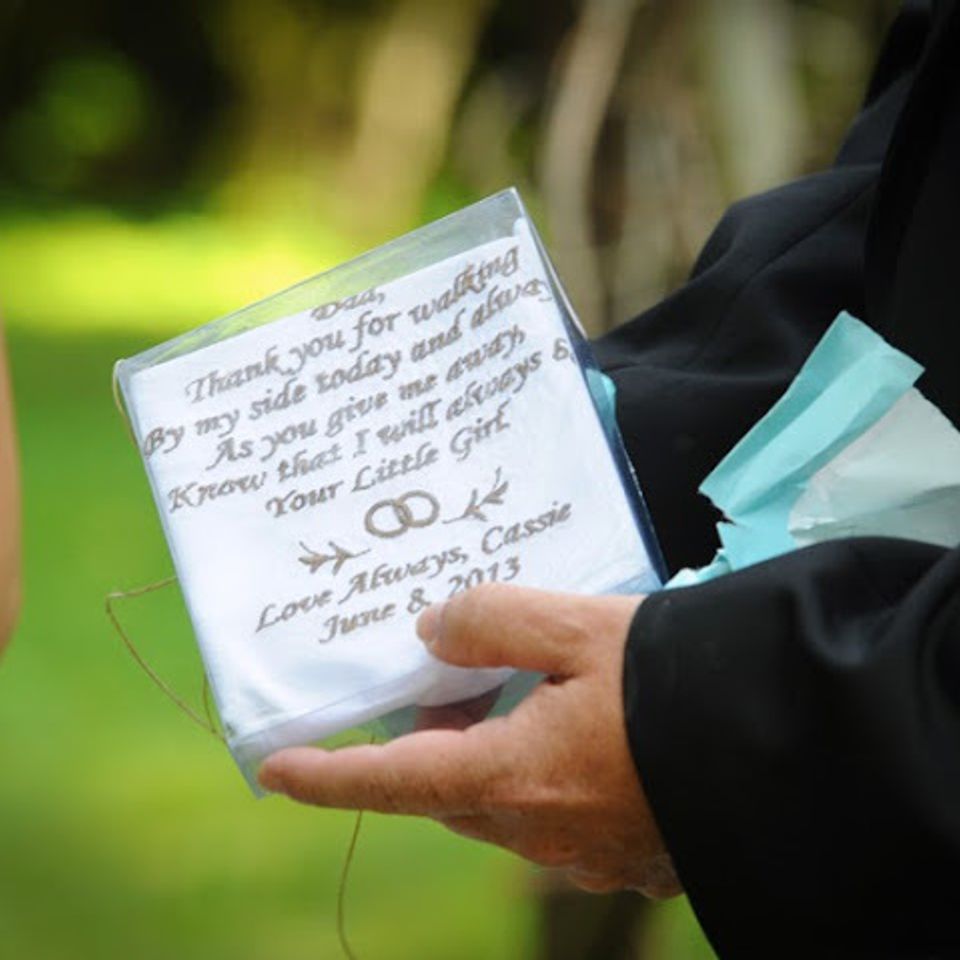 Dad,
Thank you for walking
By my side today and alway
As you give me away,
Know that I will always B
Your Little Girl.
Love Always, Cassie
June 8, 2013